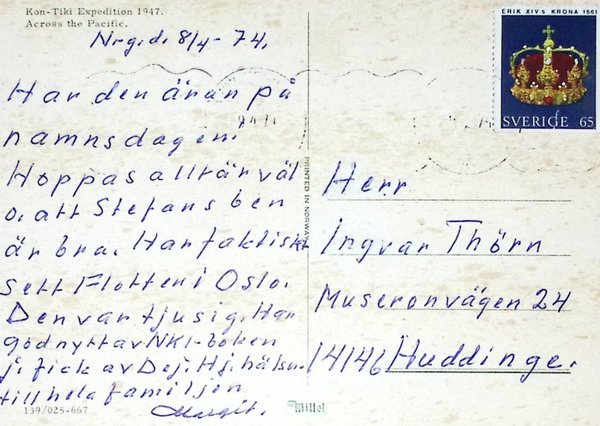 Kon-Tiki Expedition 1947.
Across the Pacific.
Nrg.d. 8/4-74.
Har den äran på
namnsdagen!
Hoppas allt är väl
o. att Stefans ben
är bra. Har faktiskt
sett Flotten i Oslo.
Den var tjusig. Har
god nytt av NKI-boken
j. fick av Dej. Hj. häls.
till hela familjen
Margit.
139/025-667
PRINTED IN NORWAY
Mittet
ERIK XIV s KRONA 1561
SVERIGE 65
Herr
Ingvar Thörn
Museronvägen 24
14146 Huddinge.